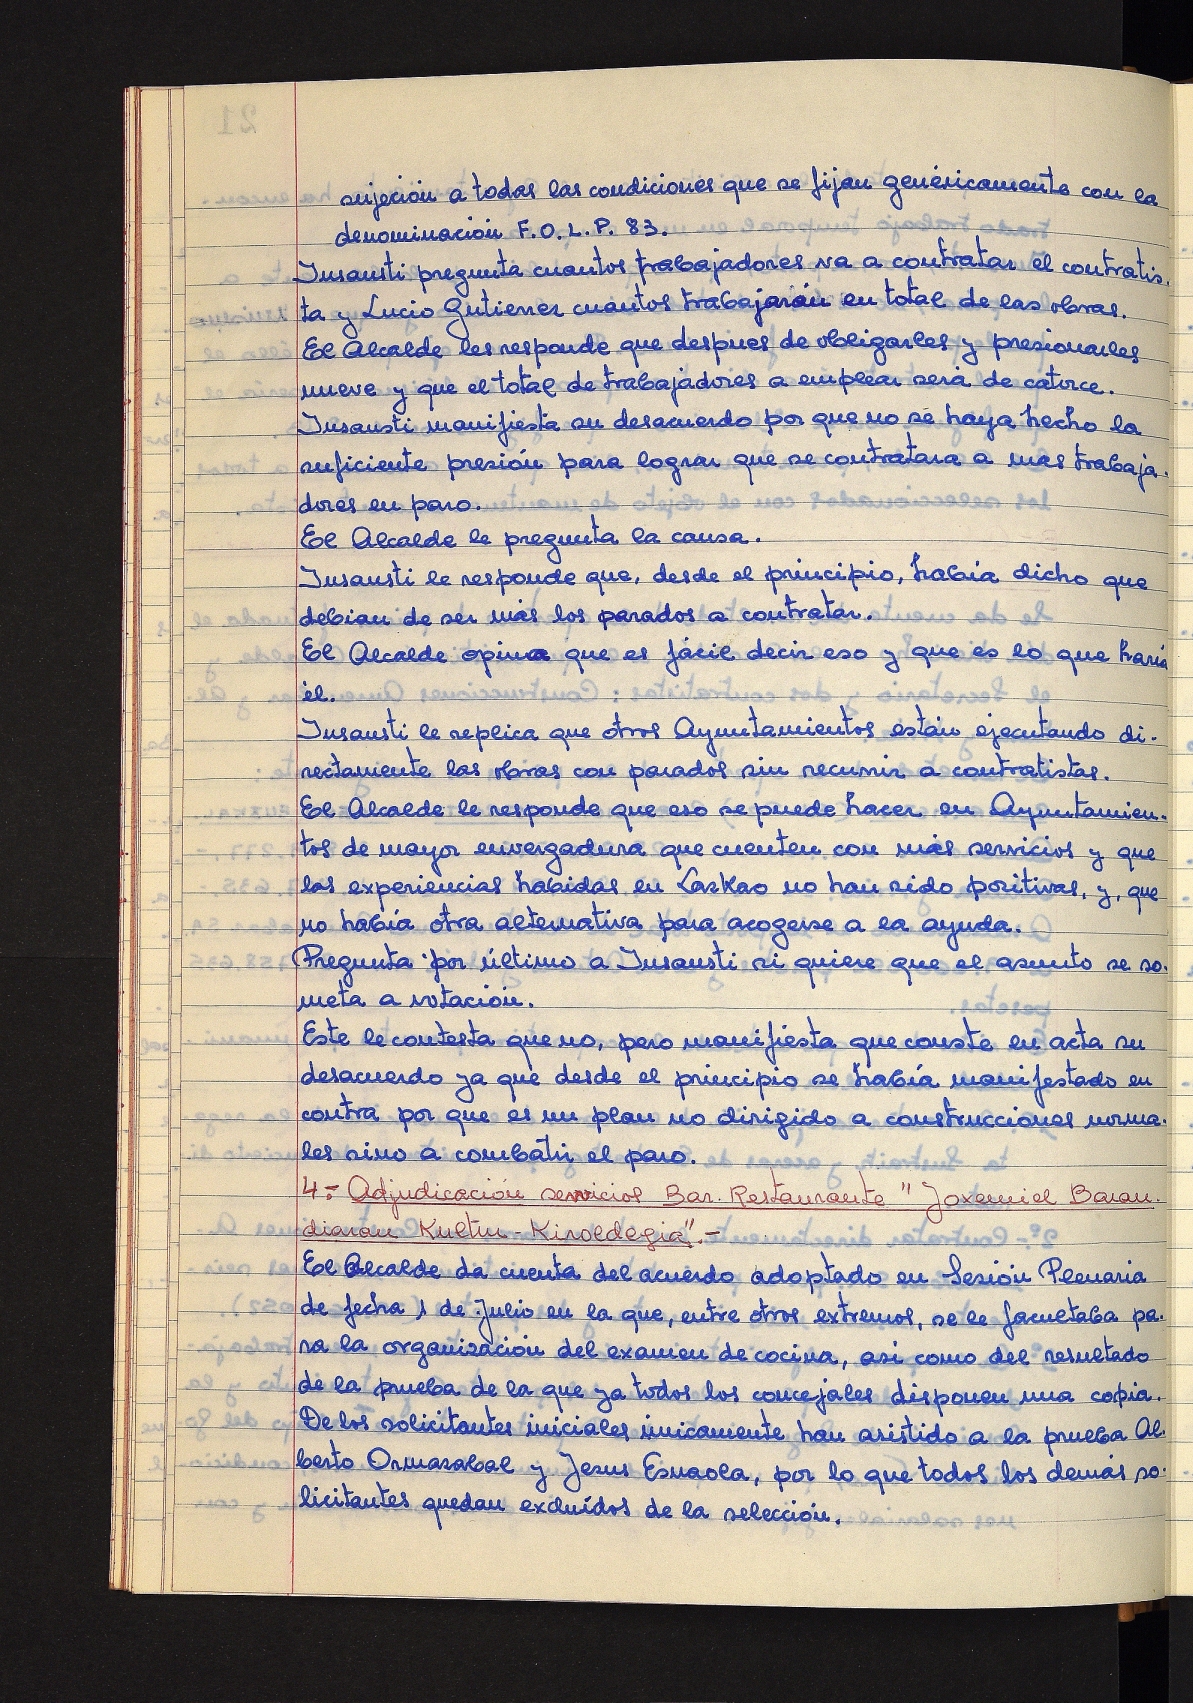 sujeción a todas las condiciones que se fijan genéricamente con la
denominación F.O.L.P. 83.
Insausti pregunta cuantos trabajadores va a contratar el contratis-
ta y Lucio Gutierrez cuantos trabajarán en total de las obras.
El Alcalde les responde que despues de obligarles y presionarles
nueve y que el total de trabajadores a emplear será de catorce.
Insausti manifiesta su desacuerdo por que no se haya hecho la
suficiente presión para lograr que se contratara a mas trabaja-
dores en paro.
El Alcalde le pregunta la causa.
Insausti le responde que, desde el principio, había dicho que
debian de ser más los parados a contratar.
El Alcalde opina que es fácil decir eso y que es lo que haría
él.
Insausti le replica que otros Ayuntamientos están ejecutando di-
rectamente las obras con parados sin recurrir a contratistas.
El Alcalde le responde que eso se puede hacer en Ayuntamien-
tos de mayor envergadura que cuenten con más servicios y que
las experiencias habidas en Lazkao no han sido positivas, y, que
no había otra alternativa para acogerse a la ayuda.
Pregunta por último a Insausti si quiere que el asunto se so-
meta a votación.
Este le contesta que no, pero manifiesta que conste en acta su
desacuerdo ya que desde el principio se había manifestado en
contra por que es un plan no dirigido a construcciones norma-
les sino a combatir el paro.
4.- Adjudicación servicios Bar-Restaurante "Joxemiel Baran-
diaran Kultur-Kiroldegia".-
El Alcalde da cuenta del acuerdo adoptado en Sesión Plenaria
de fecha 1 de Julio en la que, entre otros extremos, se le facultaba pa-
ra la organización del examen de cocina, asi como del resultado
de la prueba de la que ya todos los concejales disponen una copia.
De los solicitantes iniciales únicamente han asistido a la prueba Al-
berto Ormazabal y Jesus Esnaola, por lo que todos los demás so-
licitantes quedan excluídos de la selección.
21